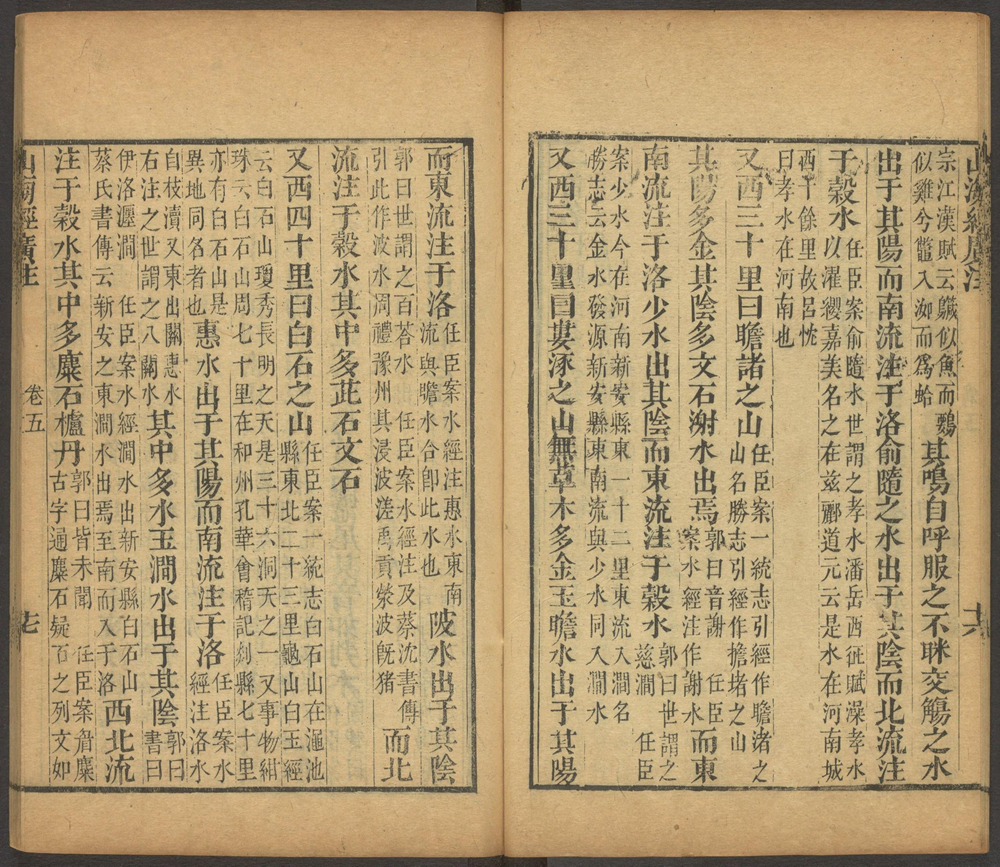 山海經廣注
宗江漢賦云䱻似魚而鷄
似雞兮鼈入泖而爲蛤
其鳴自呼服之不眯交觴之水
出于其陽而南流注于洛俞隨之水出于其陰而北流注
于穀水
任臣案俞隨水世謂之孝水潘岳西征賦澡孝水
以濯纓嘉美名之在兹酈道元云是水在河南城
西十餘里故呂忱
曰孝水在河南也
又西三十里曰瞻諸之山
任臣案一統志引經作瞻渚之
山名勝志引經作擔堵之山
其陽多金其陰多文石㴬水出焉
郭曰音謝 任臣
案水經注作謝水
而東
南流注于洛少水出其陰而東流注于穀水
郭曰世謂之
慈澗 任臣
案少水今在河南新安縣東一十二里東流入澗名
勝志云金水發源新安縣東南流與少水同入澗水
又西三十里曰婁涿之山無草木多金玉瞻水出于其陽
十六
而東流注于洛
任臣案水經注惠水東南
流與瞻水合卽此水也
陂水出于其陰
郭曰世謂之百荅水 任臣案水經注及蔡沈書傳
引此作波水周禮豫州其浸波溠禹貢滎波旣猪
而北
流注于穀水其中多茈石文石
又西四十里曰白石之山
任臣案一統志白石山在澠池
縣東北二十三里龜山白玉經
云白石山瓊秀長明之天是三十六洞天之一又事物紺
珠云白石山周七十里在和州孔華會稽記剡縣七十里
亦有白石山是
異地同名者也
惠水出于其陽而南流注于洛
任臣案水
經注洛水
自枝瀆又東出關惠水
右注之世謂之八關水
其中多水玉澗水出于其陰
郭曰
書曰
伊洛瀍澗 任臣案水經澗水出新安縣白石山
蔡氏書傳云新安之東澗水出焉至南而入于洛
西北流
注于穀水其中多麋石櫨丹
郭曰皆未聞 任臣案眉麋
古字通麋石疑石之列文如
山海經廣注
卷五
十七